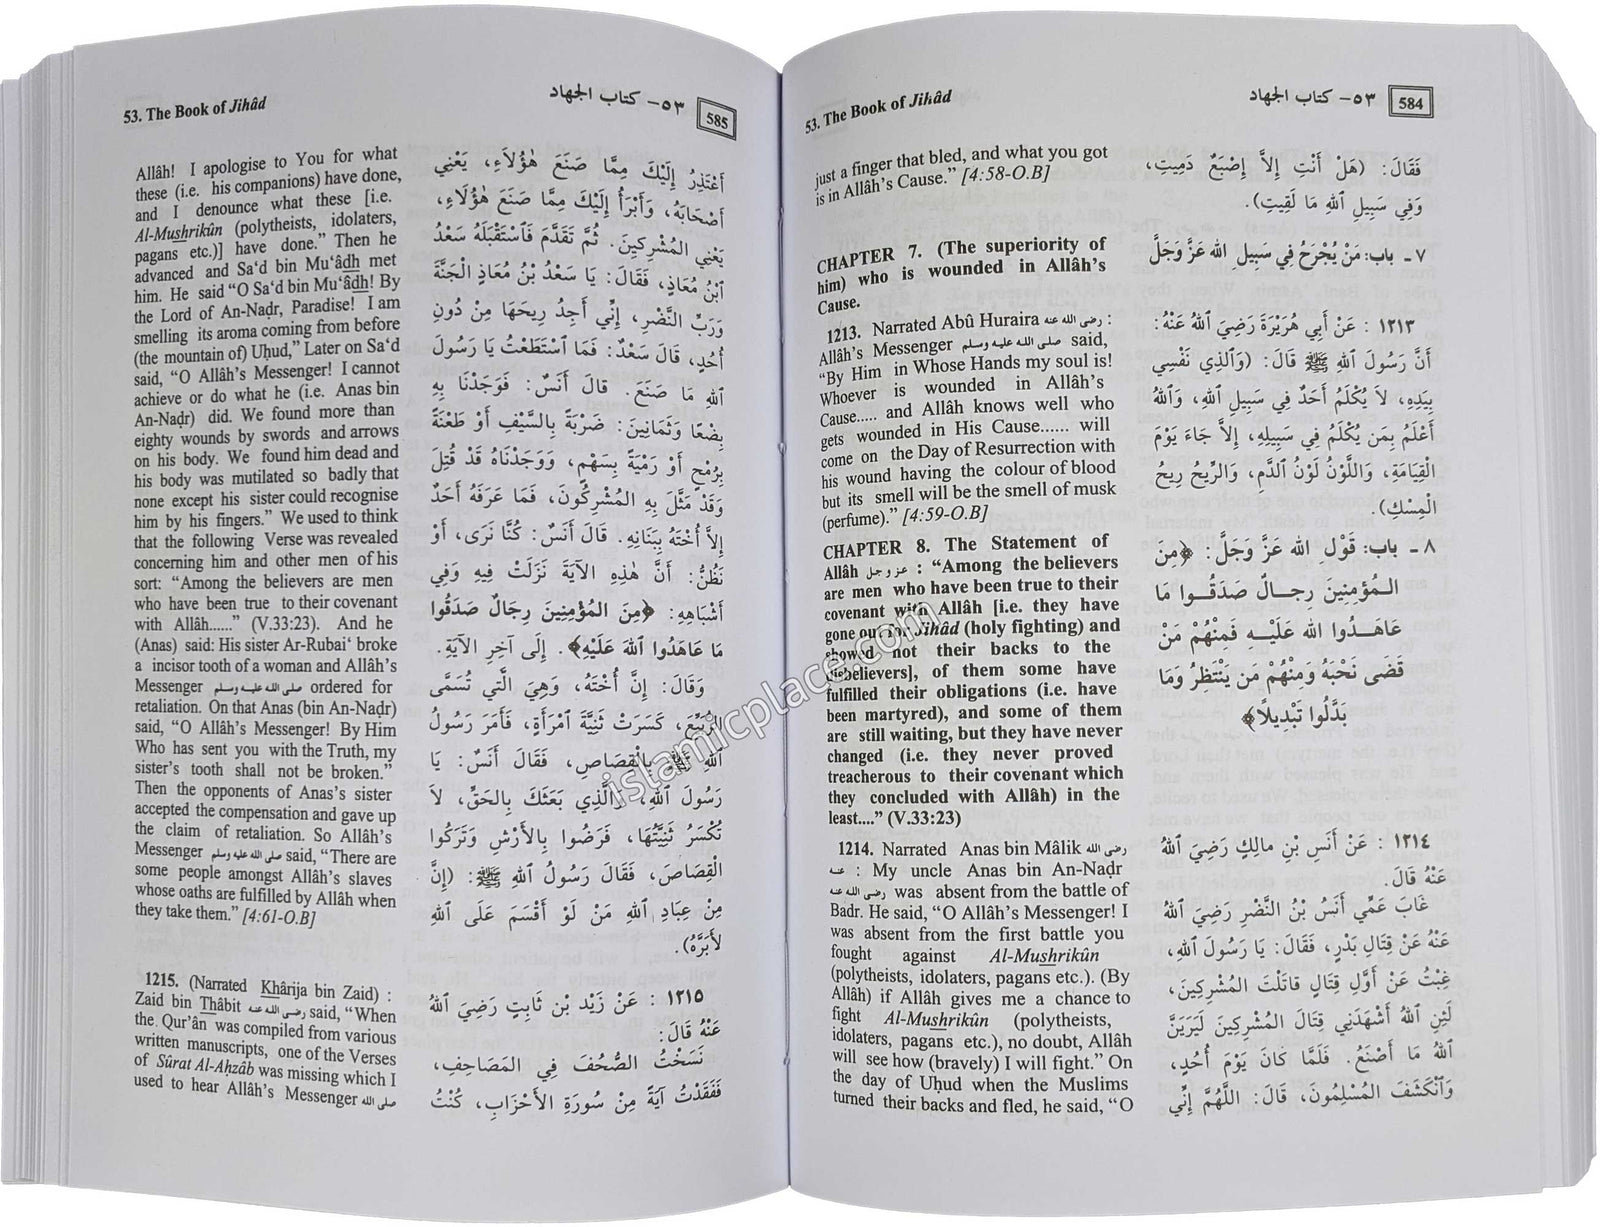 53. The Book of Jihâd
٥٣- كتاب الجهاد
584
just a finger that bled, and what you got
is in Allâh's Cause." [4:58-O.B]
CHAPTER 7. (The superiority of
him) who is wounded in Allâh's
Cause.
1213. Narrated Abû Huraira رضي الله عنه :
Allâh's Messenger صلى الله عليه وسلم said,
"By Him in Whose Hands my soul is!
Whoever is wounded in Allâh's
Cause..... and Allâh knows well who
gets wounded in His Cause...... will
come on the Day of Resurrection with
his wound having the colour of blood
but its smell will be the smell of musk
(perfume)." [4:59-O.B]
CHAPTER 8. The Statement of
Allâh عز وجل : "Among the believers
are men who have been true to their
covenant with Allâh [i.e. they have
gone out for Jihâd (holy fighting) and
showed not their backs to the
disbelievers], of them some have
fulfilled their obligations (i.e. have
been martyred), and some of them
are still waiting, but they have never
changed (i.e. they never proved
treacherous to their covenant which
they concluded with Allâh) in the
least...." (V.33:23)
1214. Narrated Anas bin Mâlik رضي الله
عنه : My uncle Anas bin An-Naḍr
رضي الله عنه was absent from the battle of
Badr. He said, "O Allâh's Messenger! I
was absent from the first battle you
fought against Al-Mushrikûn
(polytheists, idolaters, pagans etc.). (By
Allâh) if Allâh gives me a chance to
fight Al-Mushrikûn (polytheists,
idolaters, pagans etc.), no doubt, Allâh
will see how (bravely) I will fight." On
the day of Uḥud when the Muslims
turned their backs and fled, he said, "O
فَقَالَ: (هَلْ أَنْتِ إِلاَّ إِصْبَعٌ دَمِيتِ،
وَفِي سَبِيلِ اللهِ مَا لَقِيتِ).
٧ ـ باب: مَنْ يُجْرَحُ فِي سَبِيلِ الله عَزَّ وَجَلَّ
١٢١٣ : عَنْ أَبِي هُرَيْرَةَ رَضِيَ اللهُ عَنْهُ:
أَنَّ رَسُولَ اللهِ ﷺ قَالَ: (وَالَّذِي نَفْسِي
بِيَدِهِ، لاَ يُكْلَمُ أَحَدٌ فِي سَبِيلِ اللهِ، وَاللهُ
أَعْلَمُ بِمَن يُكْلَمُ فِي سَبِيلِهِ، إِلاَّ جَاءَ يَوْمَ
الْقِيَامَةِ، وَاللَّوْنُ لَوْنُ الدَّمِ، وَالرِّيحُ رِيحُ
الْمِسْكِ).
٨ ـ باب: قَوْلِ الله عَزَّ وَجَلَّ: ﴿مِنَ
المُؤمِنِينَ رِجالٌ صَدَقُوا مَا
عَاهَدُوا الله عَلَيْهِ فَمِنْهُمْ مَنْ
قَضَى نَحْبَهُ وَمِنْهُمْ مَن يَنْتَظِرُ وَمَا
بَدَّلُوا تَبْدِيلاً﴾
١٢١٤ : عَنْ أَنَسِ بْنِ مالِكٍ رَضِيَ اللهُ
عَنْهُ قَالَ.
غَابَ عَمِّي أَنَسُ بْنُ النَّضْرِ رَضِيَ اللهُ
عَنْهُ عَنْ قِتَالِ بَدْرٍ، فَقَالَ: يَا رَسُولَ اللهِ،
غِبْتُ عَنْ أَوَّلِ قِتَالٍ قاتَلْتَ المُشْرِكِينَ،
لَئِنِ اللهُ أَشْهَدَنِي قِتَالَ المُشْرِكِينَ لَيَرَيَنَّ
اللهُ مَا أَصْنَعُ. فَلَمَّا كانَ يَوْمَ أُحُدٍ،
وَانْكَشَفَ المُسْلِمُونَ، قَالَ: اللَّهُمَّ إِنِّي
53. The Book of Jihâd
٥٣- كتاب الجهاد
585
Allâh! I apologise to You for what
these (i.e. his companions) have done,
and I denounce what these [i.e.
Al-Mushrikûn (polytheists, idolaters,
pagans etc.)] have done." Then he
advanced and Sa'd bin Mu'âdh met
him. He said "O Sa'd bin Mu'âdh! By
the Lord of An-Naḍr, Paradise! I am
smelling its aroma coming from before
(the mountain of) Uḥud," Later on Sa'd
said, "O Allâh's Messenger! I cannot
achieve or do what he (i.e. Anas bin
An-Naḍr) did. We found more than
eighty wounds by swords and arrows
on his body. We found him dead and
his body was mutilated so badly that
none except his sister could recognise
him by his fingers." We used to think
that the following Verse was revealed
concerning him and other men of his
sort: "Among the believers are men
who have been true to their covenant
with Allâh......" (V.33:23). And he
(Anas) said: His sister Ar-Rubai' broke
a incisor tooth of a woman and Allâh's
Messenger صلى الله عليه وسلم ordered for
retaliation. On that Anas (bin An-Naḍr)
said, "O Allâh's Messenger! By Him
Who has sent you with the Truth, my
sister's tooth shall not be broken."
Then the opponents of Anas's sister
accepted the compensation and gave up
the claim of retaliation. So Allâh's
Messenger صلى الله عليه وسلم said, "There are
some people amongst Allâh's slaves
whose oaths are fulfilled by Allâh when
they take them." [4:61-O.B]
1215. (Narrated Khârija bin Zaid) :
Zaid bin Thâbit رضي الله عنه said, "When
the. Qur'ân was compiled from various
written manuscripts, one of the Verses
of Sûrat Al-Aḥzâb was missing which I
used to hear Allâh's Messenger صلى الله
أَعْتَذِرُ إِلَيْكَ مِمَّا صَنَعَ هٰؤُلاَءِ، يَعْنِي
أَصْحَابَهُ، وَأَبْرَأُ إِلَيْكَ مِمَّا صَنَعَ هٰؤُلاَءِ،
يَعْنِي المُشْرِكِينَ. ثُمَّ تَقَدَّمَ فَاسْتَقْبَلَهُ سَعْدُ
ابْنُ مُعَاذٍ، فَقَالَ: يَا سَعْدُ بْنُ مُعَاذٍ الْجَنَّةَ
وَرَبِّ النَّضْرِ، إِنِّي أَجِدُ رِيحَهَا مِنْ دُونِ
أُحُدٍ، قَالَ سَعْدٌ: فَمَا اسْتَطَعْتُ يَا رَسُولَ
اللهِ مَا صَنَعَ. قالَ أَنَسٌ: فَوَجَدْنَا بِهِ
بِضْعًا وَثَمَانِينَ: ضَرْبَةً بِالسَّيْفِ أَوْ طَعْنَةً
بِرُمْحٍ أَوْ رَمْيَةً بِسَهْمٍ، وَوَجَدْنَاهُ قَدْ قُتِلَ
وَقَدْ مَثَّلَ بِهِ المُشْرِكُونَ، فَمَا عَرَفَهُ أَحَدٌ
إِلاَّ أُخْتُهُ بِبَنَانِهِ. قَالَ أَنَسٌ: كُنَّا نَرَى، أَوْ
نَظُنُّ: أَنَّ هٰذِهِ الآيَةَ نَزَلَتْ فِيهِ وَفِي
أَشْبَاهِهِ: ﴿مِنَ المُؤْمِنِينَ رِجَالٌ صَدَقُوا
مَا عَاهَدُوا اللهَ عَلَيْهِ﴾. إِلَى آخِرِ الآيَةِ.
وَقَالَ: إِنَّ أُخْتَهُ، وَهِيَ الَّتِي تُسَمَّى
الرُّبَيِّعَ، كَسَرَتْ ثَنِيَّةَ امْرَأَةٍ، فَأَمَرَ رَسُولُ
اللهِ ﷺ بِالْقِصَاصِ، فَقَالَ أَنَسٌ: يَا
رَسُولَ اللهِ، وَالَّذِي بَعَثَكَ بِالحَقِّ، لاَ
تُكْسَرُ ثَنِيَّتُهَا، فَرَضُوا بِالأَرْشِ وَتَرَكُوا
الْقِصَاصَ، فَقَالَ رَسُولُ اللهِ ﷺ: (إِنَّ
مِنْ عِبَادِ اللهِ مَنْ لَوْ أَقْسَمَ عَلَى اللهِ
لأَبَرَّهُ).
١٢١٥ : عَنْ زَيْدِ بْنِ ثَابِتٍ رَضِيَ اللهُ
عَنْهُ قَالَ:
نَسَخْتُ الصُّحُفَ فِي المَصَاحِفِ،
فَفَقَدْتُ آيَةً مِنْ سُورَةِ الأَحْزَابِ، كُنْتُ
islamicplace.com